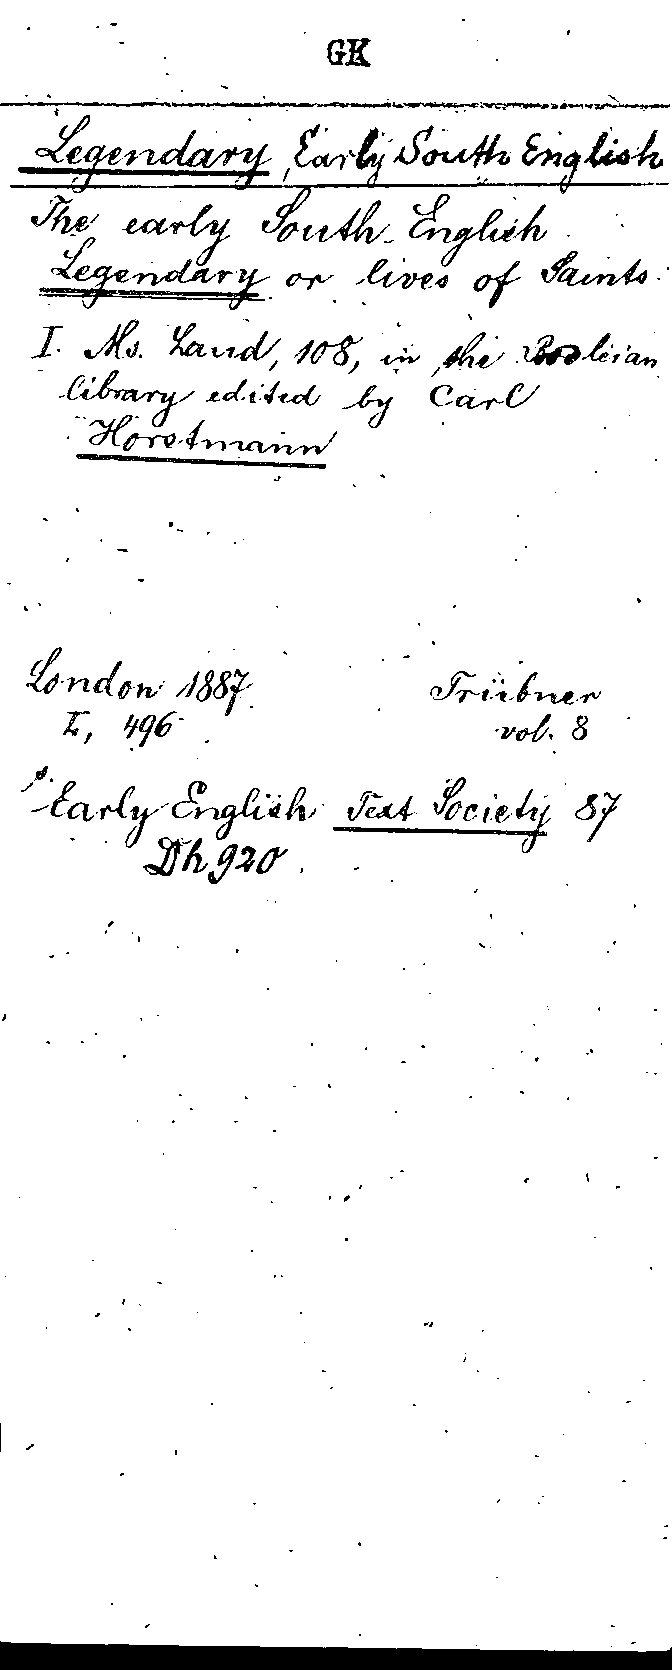 GK
Legendary, Early South English
The early South-English
Legendary or lives of Saints.
I. Ms. Laud, 108, in the Bodleian
library edited by Carl
Horstmann
London 1887 Trübner
L, 496 vol. 8
s. Early English Text Society 87
Dh 920